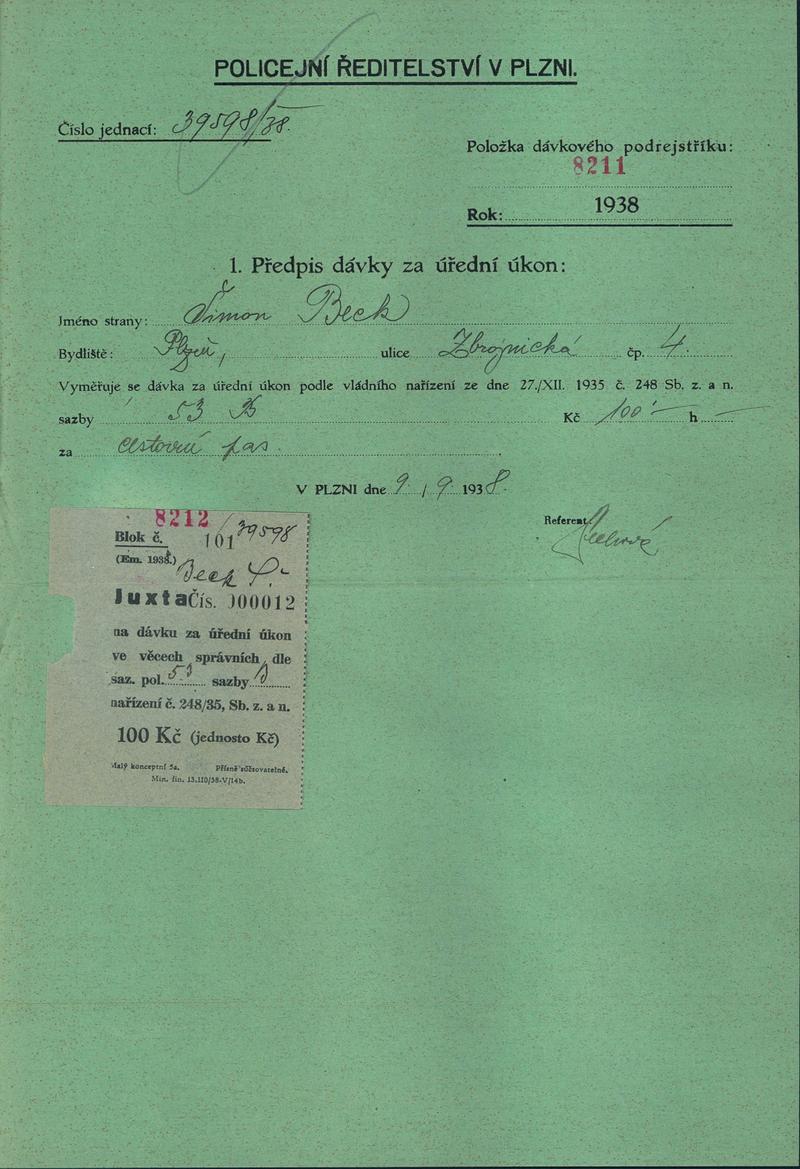 POLICEJNÍ ŘEDITELSTVÍ V PLZNI.
Číslo jednací: 39598/38.
Položka dávkového podrejstříku:
8211
Rok: 1938
1. Předpis dávky za úřední úkon:
Jméno strany: Šimon Beck
Bydliště: Plzeň, ulice Zbrojnická čp. 4.
Vyměřuje se dávka za úřední úkon podle vládního nařízení ze dne 27./XII. 1935 č. 248 Sb. z. a n.
sazby 53 B Kč 100'— h —
za cestovní pas.
V PLZNI dne 9. / 9. 1938.
Referent:
8212
Blok č. 101 39598
(Em. 1938.)
Beck
Juxta Čís. 000012
na dávku za úřední úkon
ve věcech správních dle
saz. pol. 53 sazby B
nařízení č. 248/35, Sb. z. a n.
100 Kč (jednosto Kč)
Malý konceptní 5a. Přísně zúčtovatelné.
Min. fin. 13.110/38-V/14b.